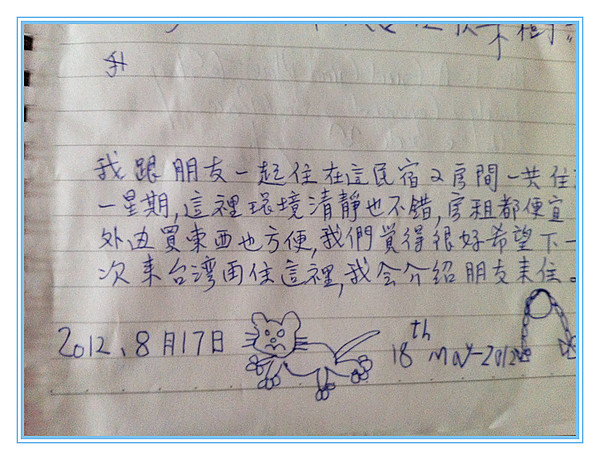 我跟朋友一起住在這民宿2房間一共住
一星期,這裡環境清靜也不错,房租都便宜
外边買東西也方便,我們覺得很好希望下一
次來台湾再住這裡,我会介紹朋友来住。
2012、8月17日
18th may-2012